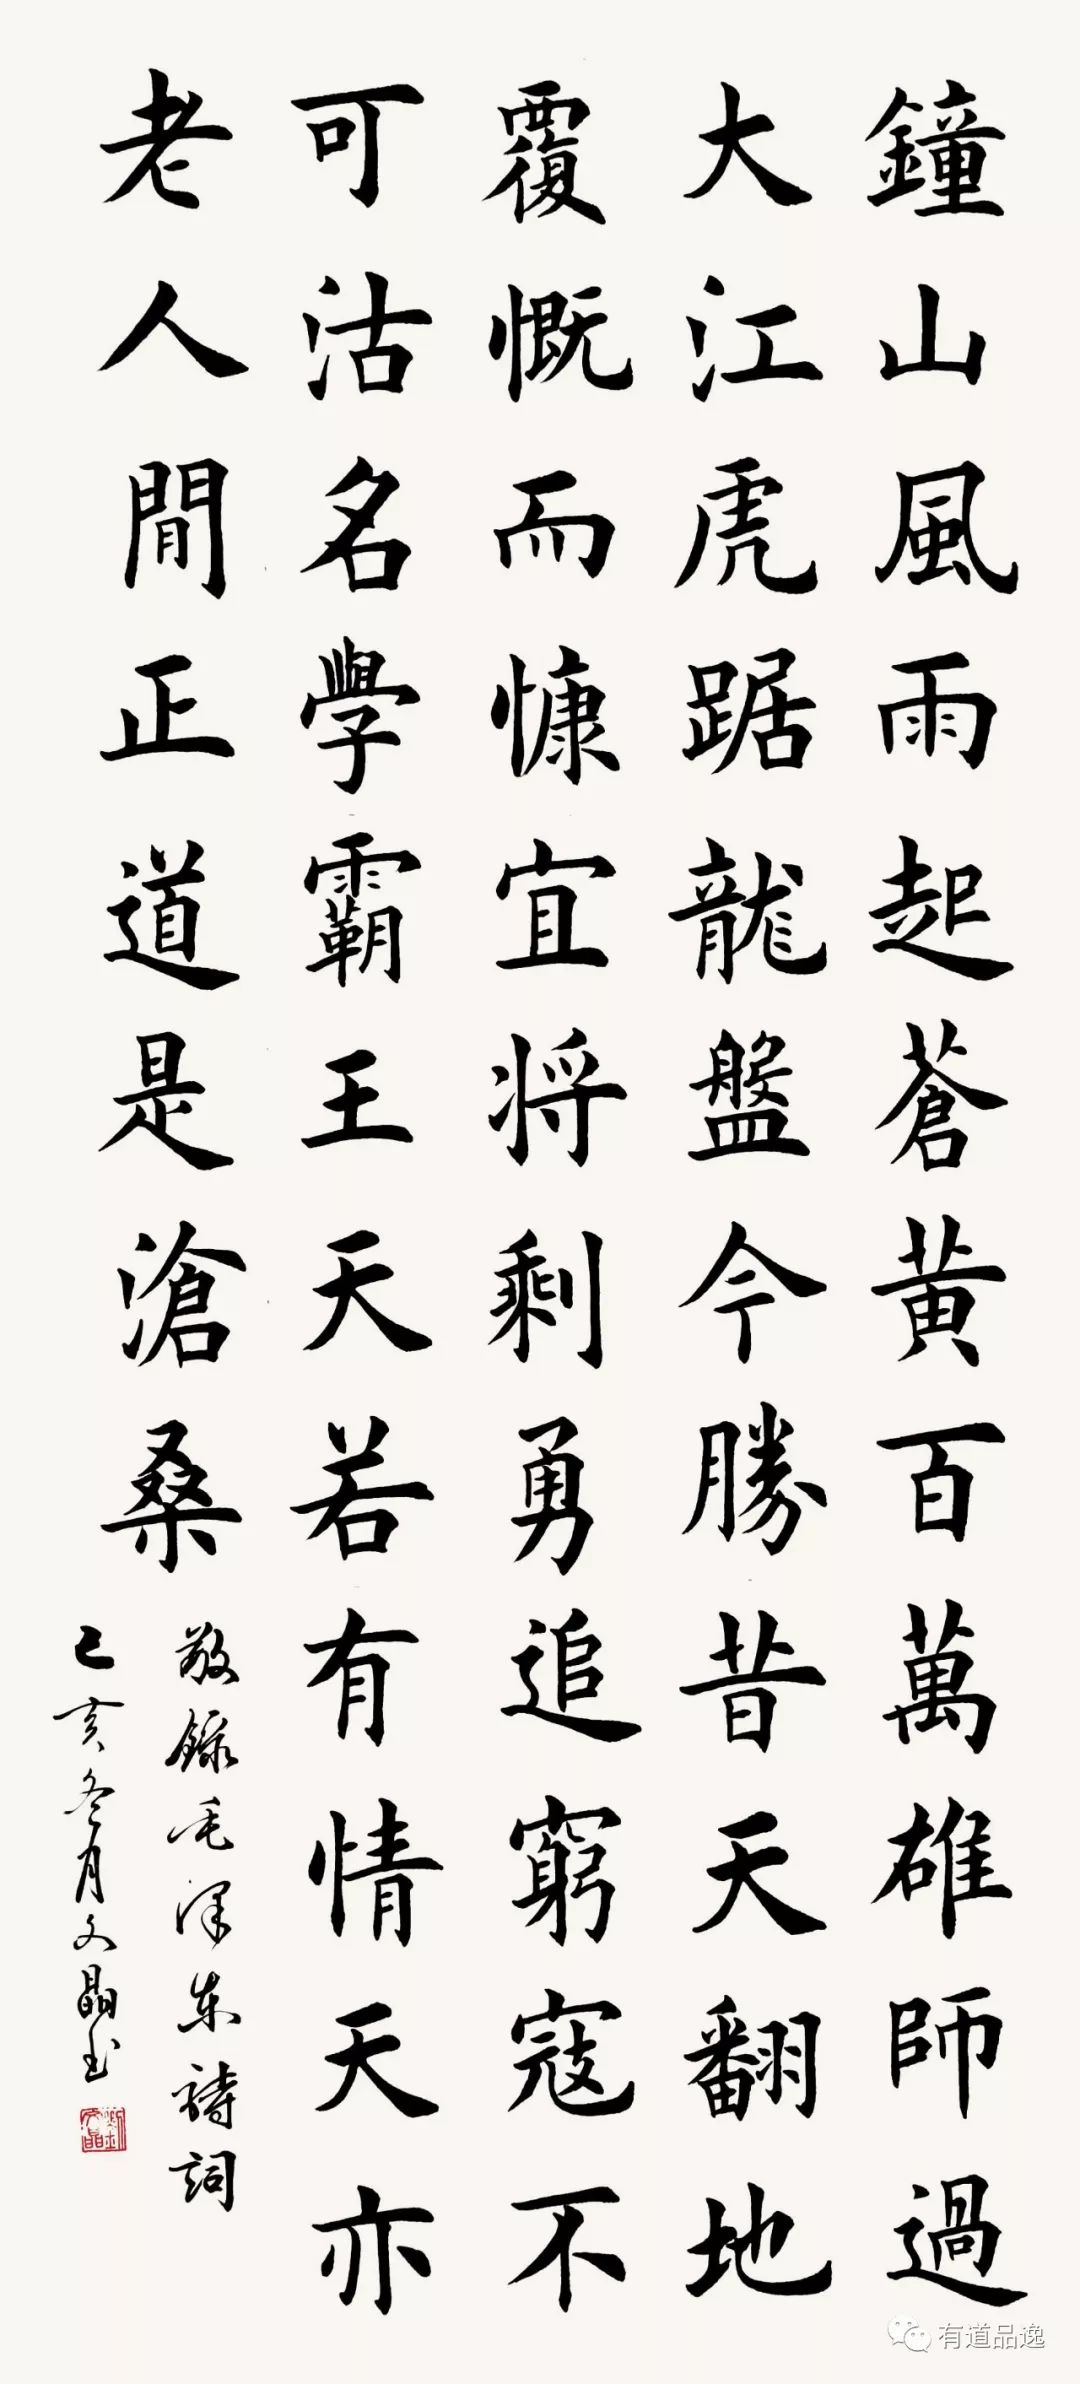 鐘山風雨起蒼黄百萬雄師過
大江虎踞龍盤今勝昔天翻地
覆慨而慷宜将剩勇追窮寇不
可沽名學霸王天若有情天亦
老人間正道是滄桑
敬録毛澤東詩詞
己亥冬月文晶书
有道品逸